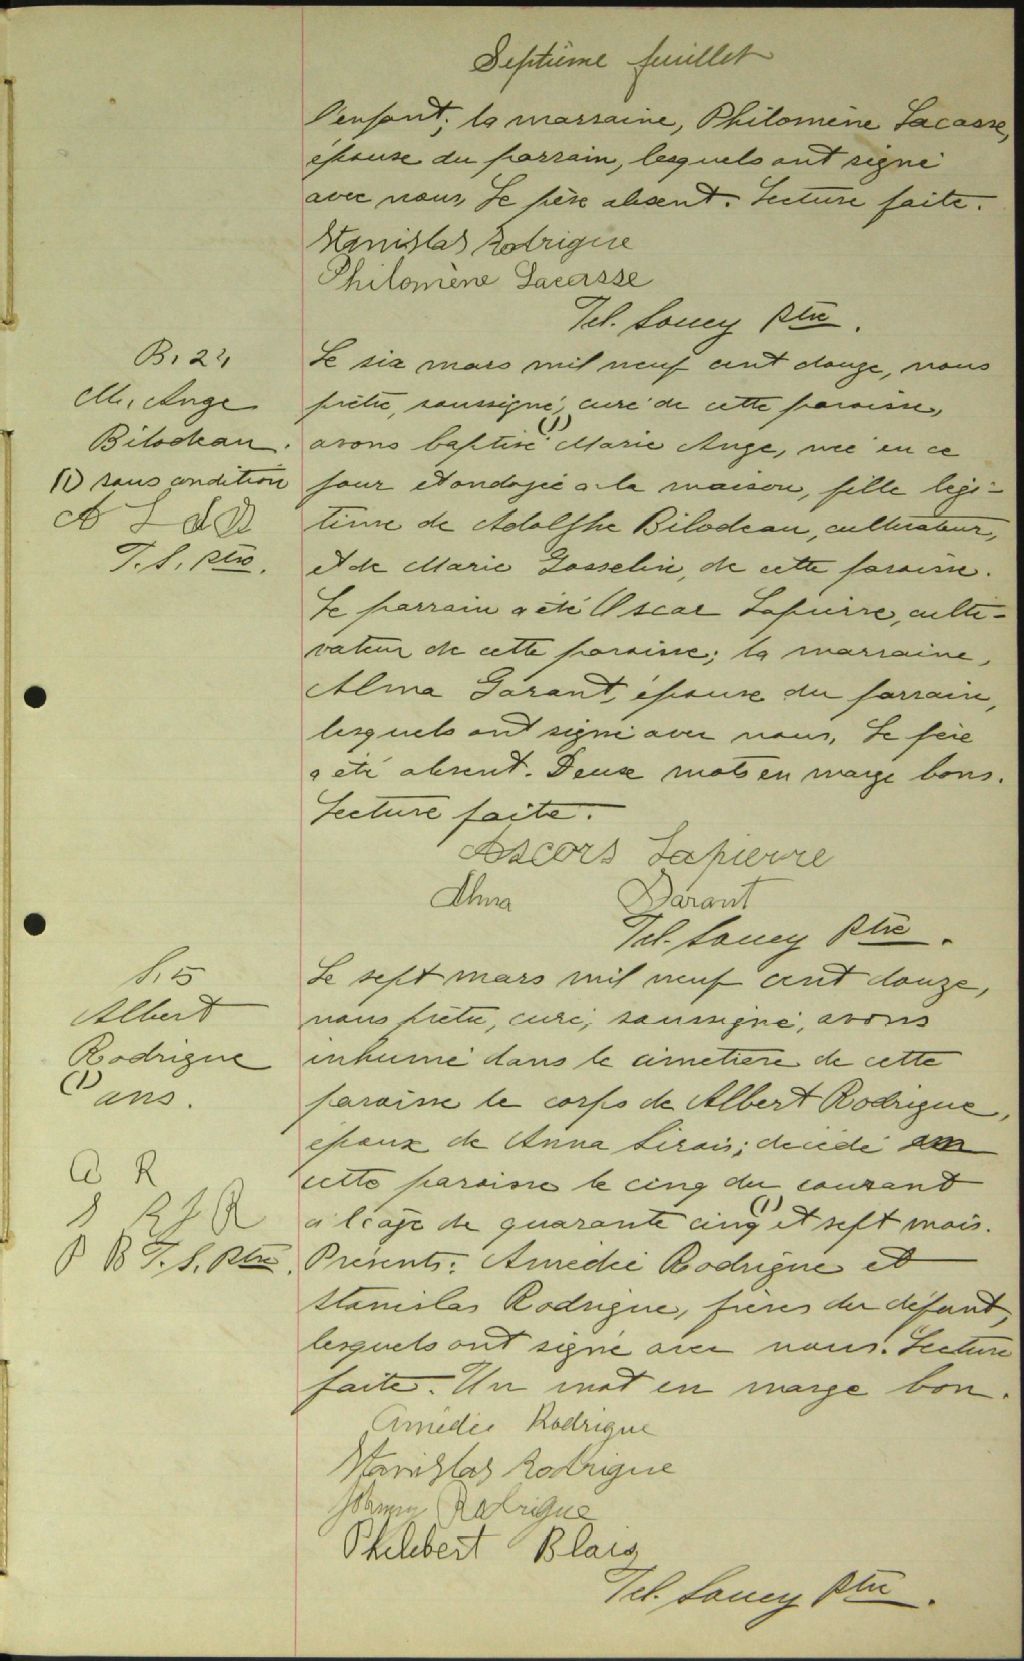 Septième feuillet
l'enfant; la marraine, Philomène Lacasse,
épouse du parrain, lesquels ont signé
avec nous, Le père absent. Lecture faite.
Stanislas Rodrigue
Philomène Lacasse
Tél. Soucy Ptre.
B. 24
M. Ange
Bilodeau.
(1) sous condition
A L A G
T. S. ptre.
Le six mars mil neuf cent douze, nous
prêtre, soussigné, curé de cette paroisse,
avons baptisé (1) Marie Ange, née en ce
jour et ondoyée a la maison, fille légi-
time de Adolphe Bilodeau, cultivateur,
et de Marie Gosselin, de cette paroisse.
Le parrain a été Oscar Lapierre, culti-
vateur de cette paroisse; la marraine,
Alma Garant, épouse du parrain,
lesquels ont signé avec nous, Le père
a été absent. Deux mots en marge bons.
Lecture faite.
Ascors Lapierre
Alma Garant
Tél. Soucy Ptre.
S. 5
Albert
Rodrigue
(1) ans.
A R
S R J R
P B T. S. Ptre.
Le sept mars mil neuf cent douze,
nous prêtre, curé, soussigné, avons
inhumé dans le cimetière de cette
paroisse le corps de Albert Rodrigue,
époux de Anna Sirois; décédé en
cette paroisse le cinq du courant
a l'age de quarante cinq (1) et sept mois.
Présents: Amédée Rodrigue et
Stanislas Rodrigue, frères du défunt,
lesquels ont signé avec nous. Lecture
faite. Un mot en marge bon.
Amédée Rodrigue
Stanislas Rodrigue
Johnny Rodrigue
Philebert Blais
Tél. Soucy Ptre.